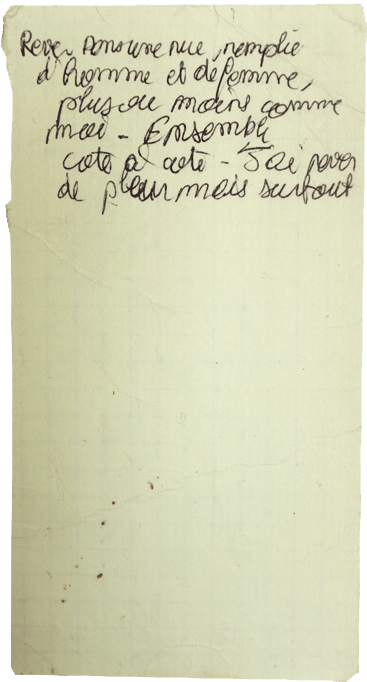 Reve - Dans une rue, remplie
d'homme et de femme,
plus ou moins comme
moi - Ensemble
cote a cote - J'ai peur
de pleur mais surtout